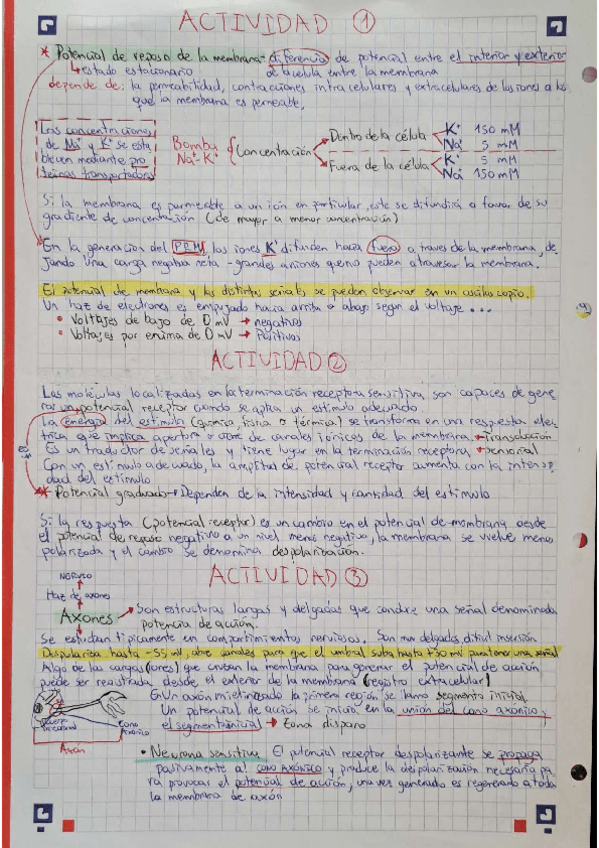 ACTIVIDAD 1
* Potencial de reposo de la membrana - diferencia de potencial entre el interior y exterior
↳ estado estacionario de la célula entre la membrana
depende de: la permeabilidad, contraciones intracelulares y extracelulares de los iones a los
que la membrana es permeable.
Las concentraciones
de Na+ y K+ se esta
blecen mediante pro
teínas transportadoras
Bomba
Na+-K+
Concentración
Dentro de la célula
K+ 150 mM
Na+ 5 mM
Fuera de la célula
K+ 5 mM
Na+ 150 mM
Si la membrana es permeable a un ión en particular, este se difundirá a favor de su
gradiente de concentración (de mayor a menor concentración)
En la generación del PRM, los iones K+ difunden hacia fuera a traves de la membrana, de
jando una carga negativa neta - grandes aniones que no pueden atravesar la membrana.
El potencial de membrana y las distintas señales se pueden observar en un osciloscopio.
Un haz de electrones es empujado hacia arriba o abajo según el voltaje ...
• Voltajes de bajo de 0 mV → negativos
• Voltajes por encima de 0 mV → Positivos
ACTIVIDAD 2
Las moléculas localizadas en la terminación receptora sensitiva son capaces de gene
rar un potencial receptor cuando se aplica un estímulo adecuado.
La energía del estímulo (química, física o térmica) se transforma en una respuesta eléc
trica que implica apertura o cierre de canales iónicos de la membrana → Transducción
Es un traductor de señales y tiene lugar en la terminación receptora sensorial
Con un estímulo adecuado, la amplitud de potencial receptor aumenta con la intensi
dad del estímulo
* Potencial graduado → Dependen de la intensidad y cantidad del estímulo
Si la respuesta (potencial receptor) es un cambio en el potencial de membrana desde
el potencial de reposo negativo a un nivel menos negativo, la membrana se vuelve menos
polarizada y el cambio se denomina despolarización.
ACTIVIDAD 3
NERVIO
Haz de axones
Axones → Son estructuras largas y delgadas que conducen una señal denominada
potencia de acción.
Se estudian típicamente en compartimientos nerviosos. Son muy delgados difícil inserción
Despolariza hasta -55 mV, abre canales para que el umbral suba hasta +30 mV para tener una señal
Algo de las cargas (iones) que cruzan la membrana para generar el potencial de acción
puede ser registrada desde el exterior de la membrana (registro extracelular)
En un axón mielinizado la primera región se llama segmento inicial
Un potencial de acción se inicia en la unión del cono axónico y
el segmento inicial → Zona disparo
Cuerpo
neuronal
Cono
Axónico
Axón
• Neurona sensitiva El potencial receptor despolarizante se propaga
pasivamente al cono axónico y produce la despolarización necesaria pa
ra provocar el potencial de acción, una vez generado es regenerado a toda
la membrana de axón